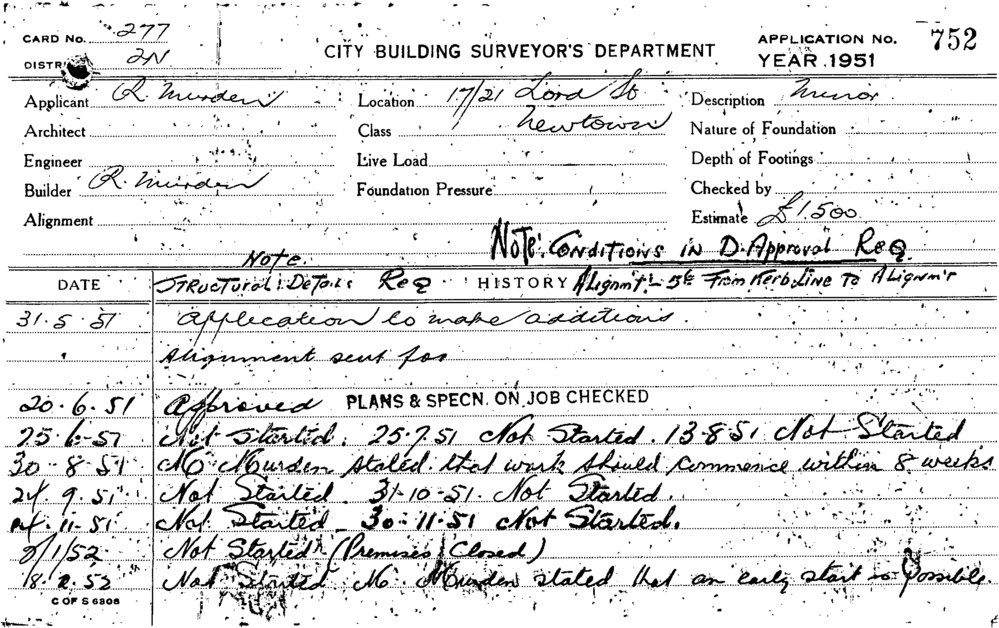 CARD No. 277
DISTR 2N
CITY BUILDING SURVEYOR'S DEPARTMENT
APPLICATION No. 752
YEAR 1951
Applicant R. Murden
Location 17/21 Lord St
Description Minor
Architect
Class Newtown
Nature of Foundation
Engineer
Live Load
Depth of Footings
Builder R. Murden
Foundation Pressure
Checked by
Alignment
Estimate £1,500
NOTE: CONDITIONS IN D. Approval REQ
Note.
DATE STRUCTURAL DETAILS REQ HISTORY Alignm't From Kerb Line To Alignm't
31.5.51 Application to make additions.
Alignment sent for
20.6.51 Approved PLANS & SPECN. ON JOB CHECKED
25.6.51 Not Started. 25.7.51 Not Started. 13.8.51 Not Started
30.8.51 Mr Murden stated that work should commence within 8 weeks
24.9.51 Not Started. 31-10-51. Not Started.
11.51 Not Started 30.11.51 Not Started.
/1/52 Not Started (Premises Closed)
18.2.52 Not Started Mr Murden stated that an early start is possible.
C OF S 6308